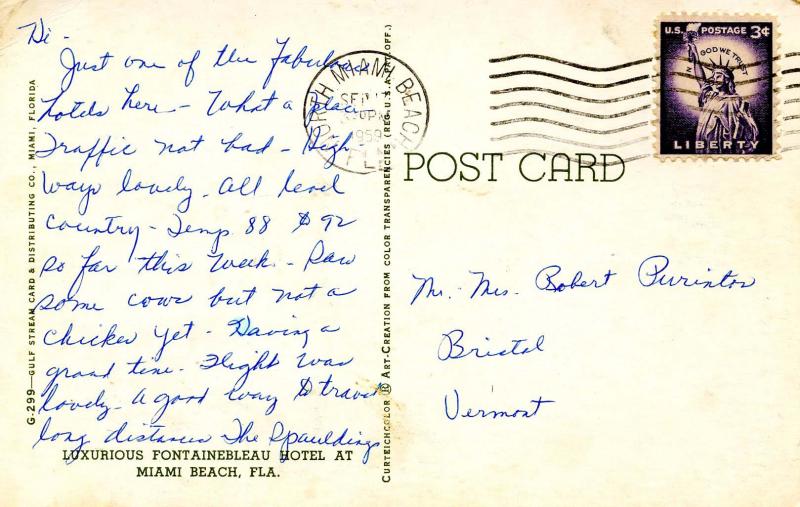 Hi -
Just one of the fabulous
hotels here - What a place
Traffic not bad - High
ways lovely. All level
country - Temp 88 & 92
so far this week - Saw
some cows but not a
chicken yet - Having a
grand time. Flight was
lovely - A good way to travel
long distances The Spauldings
LUXURIOUS FONTAINEBLEAU HOTEL AT
MIAMI BEACH, FLA.
G-299—GULF STREAM CARD & DISTRIBUTING CO., MIAMI, FLORIDA
CURTEICHCOLOR ® ART-CREATION FROM COLOR TRANSPARENCIES (REG. U.S.A. PAT. OFF.)
NORTH MIAMI BEACH
SEP
PM
1959
FLA
POST CARD
U.S. POSTAGE 3¢
IN GOD WE TRUST
LIBERTY
Mr. Mrs. Robert Purinton
Bristol
Vermont